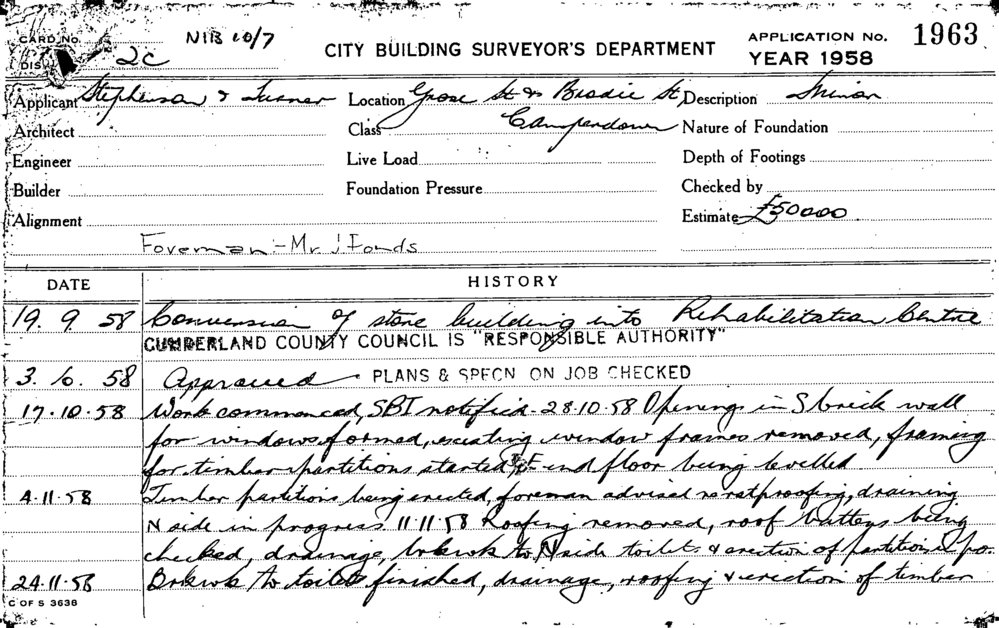 CARD No.
NIB 10/7
CITY BUILDING SURVEYOR'S DEPARTMENT
APPLICATION No. 1963
DIS. 2C
YEAR 1958
Applicant Stephenson & Turner Location Grose St & Brodie St, Description Minor
Architect Class Camperdown Nature of Foundation
Engineer Live Load Depth of Footings
Builder Foundation Pressure Checked by
Alignment Estimate £50000
Foreman - Mr J Fonds
DATE HISTORY
19. 9. 58 Conversion of store building into Rehabilitation Centre
CUMBERLAND COUNTY COUNCIL IS "RESPONSIBLE AUTHORITY"
3. 10. 58 Approved. PLANS & SPECN ON JOB CHECKED
17.10.58 Work commenced, SBI notified. 28.10.58 Openings in S brick wall
for windows formed, existing window frames removed, framing
for timber partitions started, E end floor being levelled
4.11.58 Timber partitions being erected, foreman advised re ratproofing, draining
N side in progress 11.11.58 Roofing removed, roof battens being
checked, drainage, brkwk to N side toilets & erection of partitions i.po.
24.11.58 Brkwk to toilets finished, drainage, roofing & erection of timber
C OF S 3638